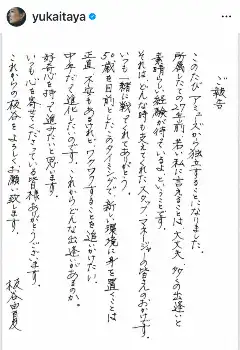 yukaitaya
ご報告
このたび アミューズから独立することになりました。
所属したての27年前、若い私に言えることは、大丈夫、多くの出逢いと
素晴らしい経験が待っているよ、ということです。
それは、どんな時も支えてくれたスタッフ、マネージャーの皆さんのおかげです。
いつも一緒に戦ってくれてありがとう。
50歳を目前としたこのタイミングで新しい環境に身を置くことは
正直、不安もあるけれど、ワクワクすることを追いかけたい。
中年だって進化したいのです。これからどんな出逢いがあるのか。
好奇心を持って進みたいと思います。
いつも心を寄せてくださっている皆様、ありがとうございます。
これからの板谷をよろしくお願い致します。
板谷由夏